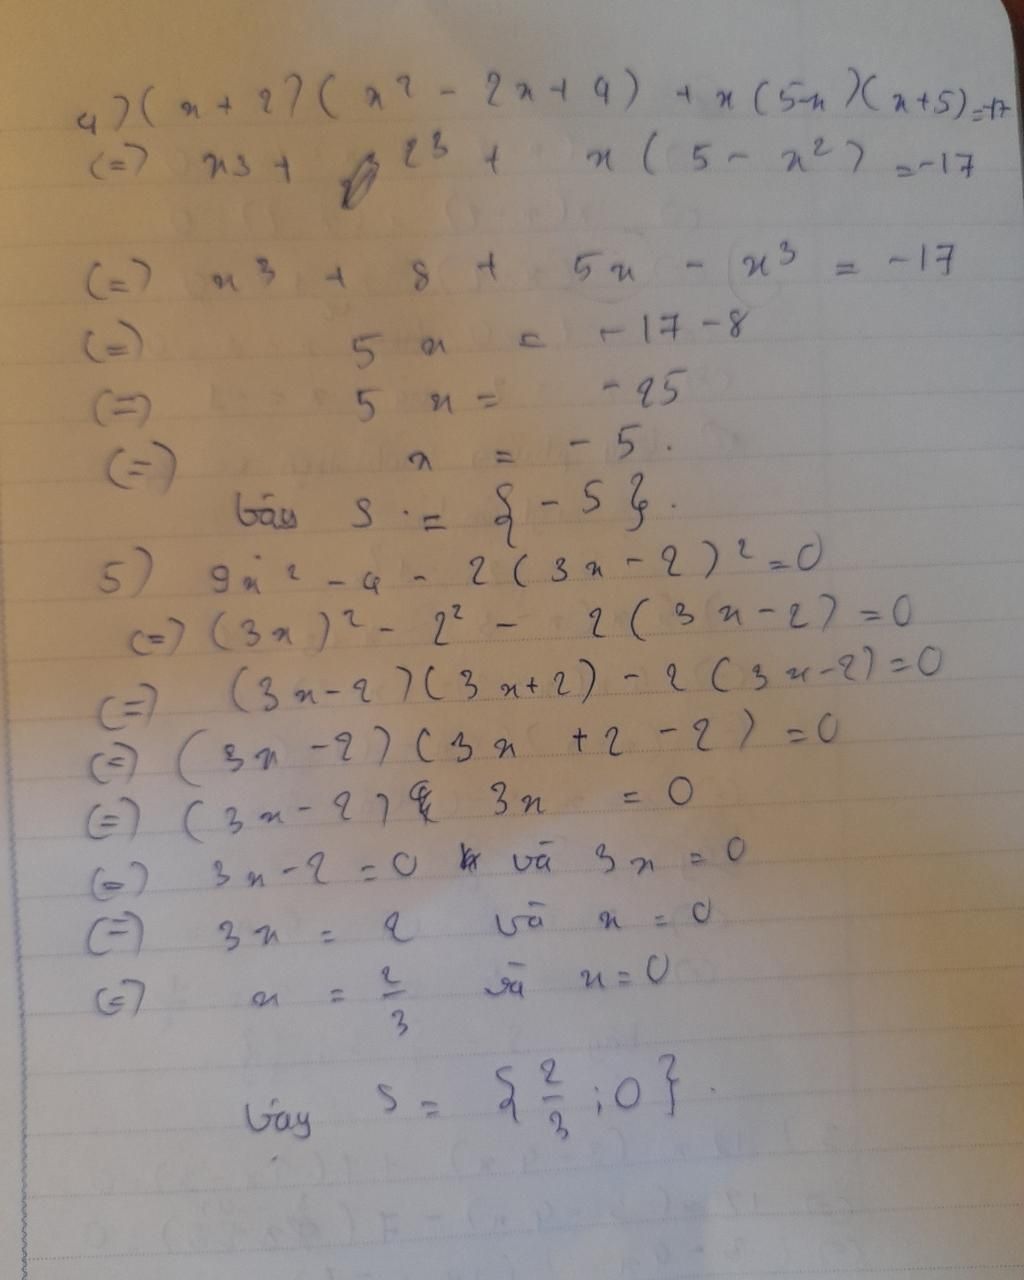 4) (x + 2)(x² - 2x + 4) + x(5-x)(x+5) = -17
(=) x3 + 2³ + x(5 - x²) = -17
(=) x³ + 8 + 5x - x³ = -17
(=) 5x = -17 - 8
(=) 5x = -25
(=) x = -5.
Vậy S = {-5}.
5) 9x² - 4 - 2(3x - 2)² = 0
(=) (3x)² - 2² - 2(3x - 2) = 0
(=) (3x - 2)(3x + 2) - 2(3x - 2) = 0
(=) (3x - 2)(3x + 2 - 2) = 0
(=) (3x - 2) 3x = 0
(=) 3x - 2 = 0 và 3x = 0
(=) 3x = 2 và x = 0
(=) x = 2/3 và x = 0
Vậy S = {2/3 ; 0}.